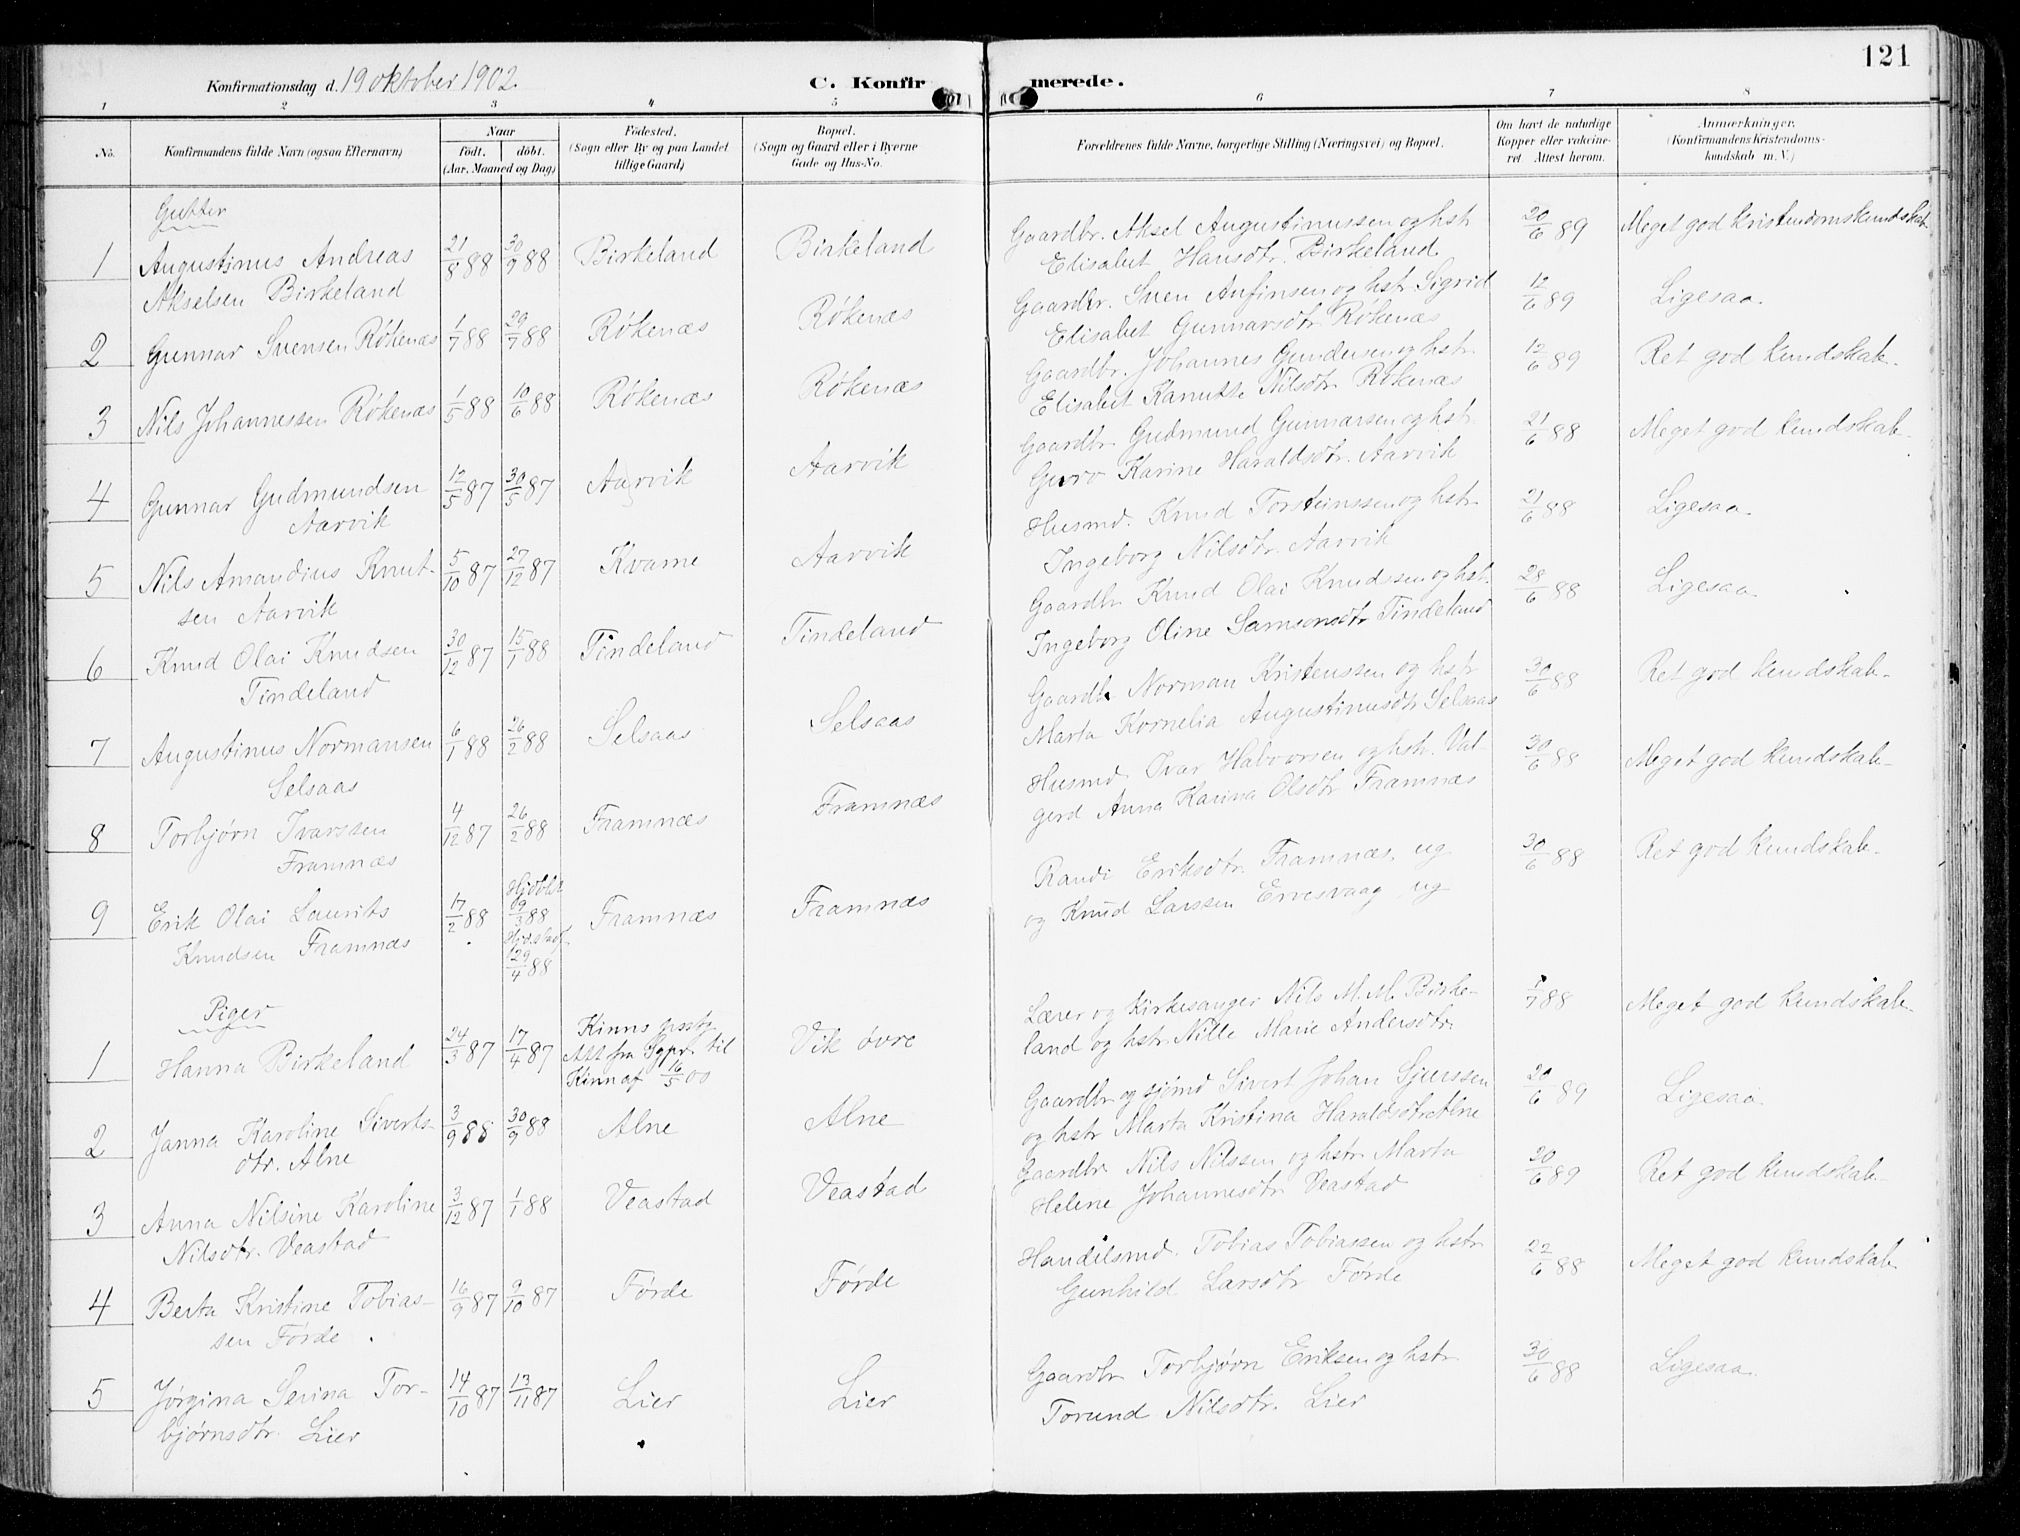 121
Konfirmationsdag d. 19 oktober 1902. C. Konfirmerede.
1 2 3 4 5 6 7 8
No. Konfirmandens fulde Navn (ogsaa Efternavn) Naar født. døbt. (Aar, Maaned og Dag) Fødested. (Sogn eller By og paa Landet tillige Gaard) Bopæl. (Sogn og Gaard eller i Byerne Gade og Hus-No. Forældrenes fulde Navne, borgerlige Stilling (Næringsvei) og Bopæl. Om havt de naturlige Kopper eller vakcineret. Attest herom. Anmærkninger. (Konfirmandens Kristendomskundskab m. V.)
Gutter
1 Augustinus Andreas 21/8 88 30/9 88 Birkeland Birkeland Gaardbr. Aksel Augustinussen og hstr 20/6 89 Meget god kristendomskundskab
Akselsen Birkeland Elisabet Hansdtr. Birkeland
2 Gunnar Svensen Røkenæs 1/7 88 29/7 88 Røkenæs Røkenæs Gaardbr. Sven Anfinsen og hstr Sigrid 12/6 89 Ligesaa.
Elisabet Gunnarsdtr Røkenæs
3 Nils Johannessen Røkenæs 1/5 88 10/6 88 Røkenæs Røkenæs Gaardbr. Johannes Gundersen og hstr. 12/6 89 Ret god kundskab.
Elisabet Kanutte Nilsdtr Røkenæs
4 Gunnar Gudmundsen 12/5 87 30/5 87 Aarvik Aarvik Gaardbr Gudmund Gunnarsen og hstr. 21/6 88 Meget god kundskab.
Aarvik Guro Karine Haraldsdtr. Aarvik
5 Nils Amandius Knut- 5/10 87 27/12 87 Kvame Aarvik Husmd. Knud Torsteinssen og hstr 21/6 88 Ligesaa.
sen Aarvik Ingeborg Nilsdtr. Aarvik
6 Knud Olai Knudsen 30/12 87 15/1 88 Tindeland Tindeland Gaardbr Knud Olai Knudssen og hstr. 28/6 88 Ligesaa
Tindeland Ingeborg Oline Samsonsdtr Tindeland
7 Augustinus Normansen 6/1 88 26/2 88 Selsaas Selsaas Gaardbr Norman Kristenssen og hstr 30/6 88 Ret god kundskab.
Selsaas Marta Kornelia Augustinusdtr Selsaas
8 Torbjørn Ivarssen 4/12 87 26/2 88 Framnæs Framnæs Husmd. Ivar Halvorsen og hstr. Val- 30/6 88 Meget god kundskab.
Framnæs gerd Anna Karina Olsdtr Framnæs
9 Erik Olai Laurits 17/2 88 Hjdøbt 19/3 88 Framnæs Framnæs Randi Eriksdtr. Framnæs, ug 30/6 88 Ret god kundskab.
Knudsen Framnæs 29/4 88 og Knud Larssen Ervesvaag, ug
Piger
1 Hanna Birkeland 24/3 87 17/4 87 Kinns prstg. Vik øvre Lærer og Kirkesanger Nils M. M. Birke- 1/7 88 Meget god kundskab.
Att fra Sgpr. til land og hstr. Nille Marie Andersdtr.
Kinn af 16/5 00
2 Janna Karoline Siverts- 3/9 88 30/9 88 Alne Alne Gaardbr og sjømd Sivert Johan Sjurssen 20/6 89 Ligesaa.
dtr. Alne og hstr Marta Kristina Haraldsdtr Alne
3 Anna Nilsine Karoline 3/12 87 1/1 88 Veastad Veastad Gaardbr Nils Nilssen og hstr. Marta 20/6 89 Ret god kundskab.
Nilsdtr. Veastad Helene Johannesdtr Veastad
4 Berta Kristine Tobias- 16/9 87 9/10 87 Førde Førde Handelsmd. Tobias Tobiassen og hstr 22/6 88 Meget god kundskab
sen Førde. Gunhild Larsdtr Førde
5 Jørgina Serina Tor- 14/10 87 13/11 87 Lier Lier Gaardbr Torbjørn Eriksen og hstr 30/6 88 Ligesaa.
bjørnsdtr. Lier Torund Nilsdtr. Lier